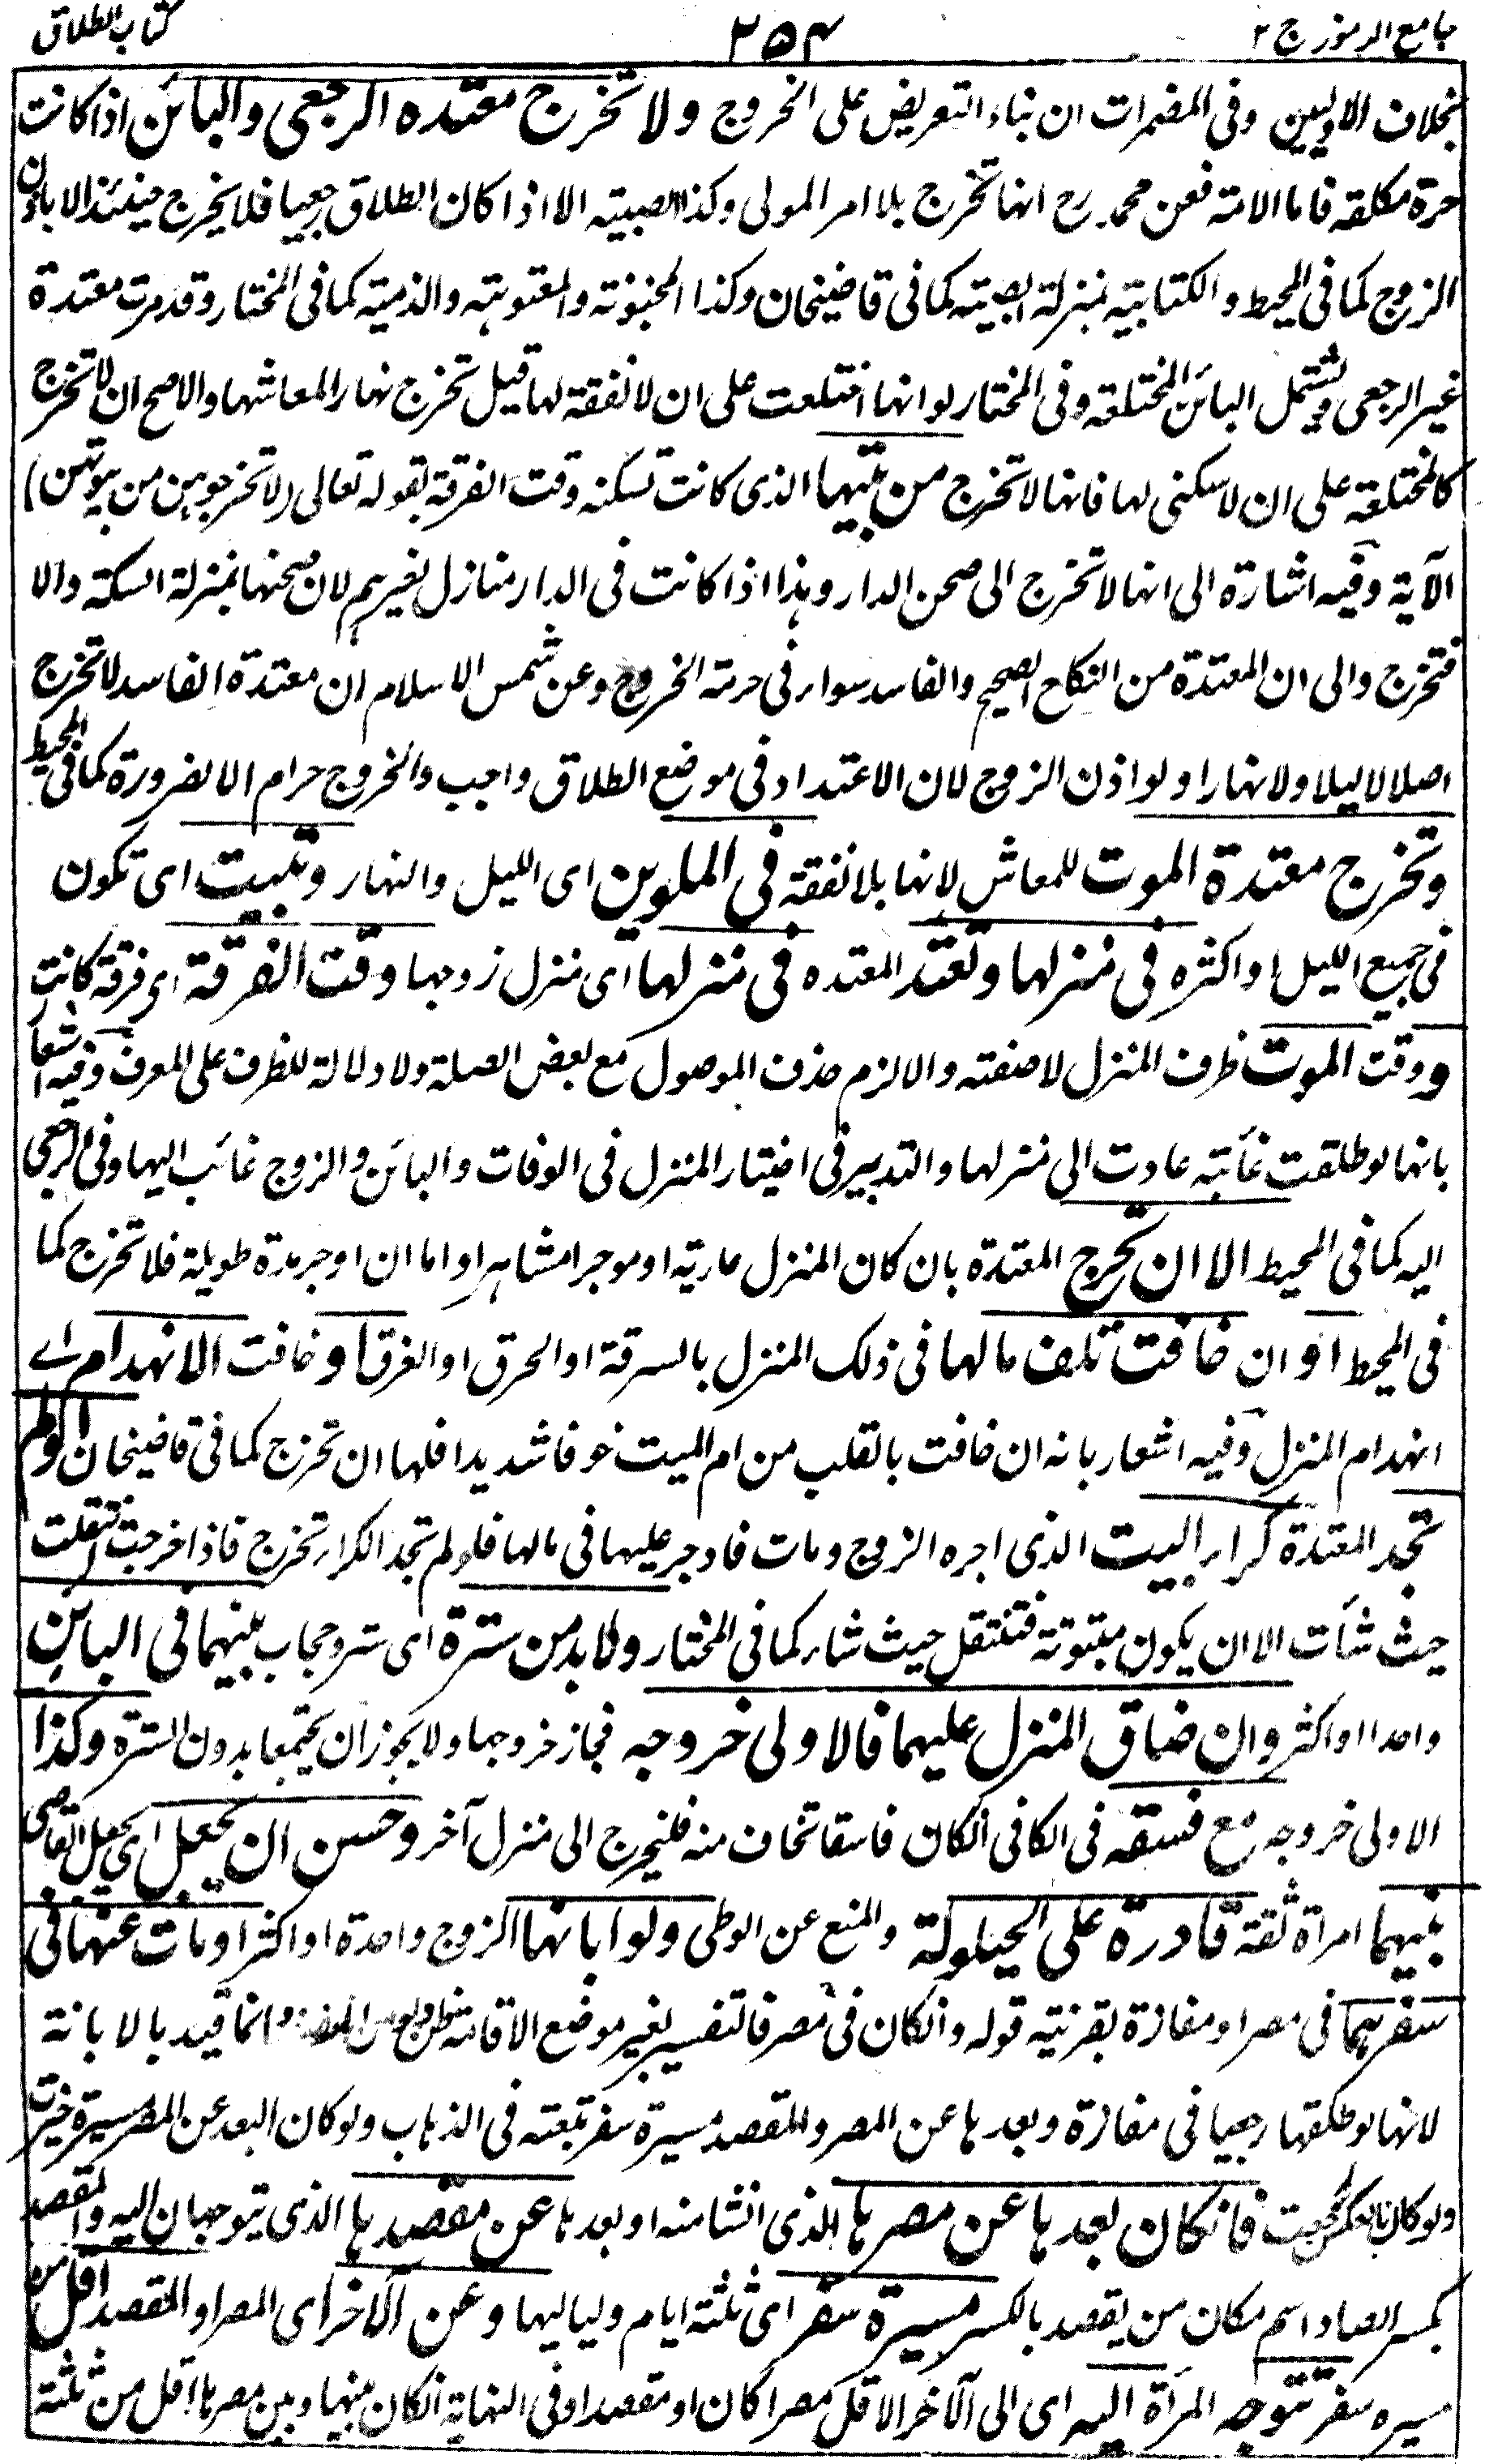 جامع الرموز ج ٢
٢٥٤
كتاب الطلاق
بخلاف الاوليين وفى المضمرات ان بناء التعريض على الخروج ولا تخرج معتده الرجعى والبائن اذا كانت
حرة مكلفه فاما الامة فعن محمد رح انها تخرج بلا امر المولى وكذا الصبيته الا اذا كان الطلاق رجعيا فلا يخرج حينئذ الا باذن
الزوج كما فى المحيط والكتابيته بمنزلة الصبيته كما فى قاضيخان وكذا المجنونته والمعتوہته والذميته كما فى المختار وقد مرت معتدة
غير الرجعى ويشتمل البائن المختلعة وفى المختار لو انها اختلعت على ان لا نفقة لها قيل تخرج نهارا لمعاشها والاصح ان لا تخرج
كالمختلعة على ان لا سكنى لها فانها لا تخرج من بيتها الذى كانت تسكنه وقت الفرقة بقوله تعالى (لا تخرجوہن من بيوتهن)
الآية وفيه اشارة الى انها لا تخرج الى صحن الدار وہذا اذا كانت فى الدار منازل لغيرہم لان صحنها بمنزلة السكة والا
فتخرج والى ان المعتدة من النكاح الصحيح والفاسد سواء فى حرمة الخروج وعن شمس الاسلام ان معتدة الفاسد لا تخرج
اصلا لا ليلا ولا نهارا ولو اذن الزوج لان الاعتداد فى موضع الطلاق واجب والخروج حرام الا لضرورة كما فى المحيط
وتخرج معتدة الموت للمعاش لانها بلا نفقة فى الملوين اى الليل والنهار وتبيت اى تكون
فى جميع الليل او اكثره فى منزلها وتعتد المعتده فى منزلها اى منزل زوجها وقت الفرقة اى فرقة كانت
ووقت الموت ظرف المنزل لا صفته والا لزم حذف الموصول مع بعض الصلة ولا دلالة للظرف على المعرف وفيه اشعار
بانها لو طلقت غائبته عادت الى منزلها والتدبير فى اختيار المنزل فى الوفات والبائن والزوج غائب اليها وفى الرجعى
اليه كما فى المحيط الا ان تخرج المعتدة بان كان المنزل عارية او موجرا مشاہرة واما ان اوجر مدة طويلة فلا تخرج كما
فى المحيط او ان خافت تلف مالها فى ذلك المنزل بالسرقة او الحرق او الغرق او خافت الانهدام اے
انهدام المنزل وفيه اشعار بانه ان خافت بالقلب من ام الميت خوفا شديدا فلها ان تخرج كما فى قاضيخان او لم
تجد المعتدة كراء البيت الذى اجره الزوج ومات فاوجر عليها فى مالها فلو لم تجد الكراء تخرج فاذا خرجت انتقلت
حيث شأت الا ان يكون مبتوتة فتنتقل حيث شاء كما فى المختار ولا بد من سترة اى ستر وحجاب بينهما فى البائن
واحدا او اكثر وان ضاق المنزل عليهما فالاولى خروجه فجاز خروجها ولا يجوز ان يجتمعا بدون السترة وكذا
الاولى خروجه مع فسقه فى الكافى انكان فاسقا تخاف منه فليخرج الى منزل آخر وحسن ان يجعل اى يجعل القاضى
بينهما امراة ثقة قادرة على الحيلولة والمنع عن الوطى ولو ابانها الزوج واحدة او اكثر او مات عنها فى
سفرہما فى مصر او مفازة بقرنيته قوله وانكان فى مصر فالتفسير بغير موضع الاقامة وانما قيد بالابانة
لانها لو طلقها رجعيا فى مفازة وبعدہا عن المصر والمقصد مسيرة سفر تبعته فى الذہاب ولو كان البعد عن المصر مسيرة خيرت
ولو كان بالعكس رجعت فانكان بعدہا عن مصرہا الذى انشا منه او بعدہا عن مقصدہا الذى يتوجهان اليه والمقصد
بكسر الصاد اسم مكان من يقصد بالكسر مسيرة سفر اى ثلثة ايام ولياليها وعن الآخر اى المصر او المقصد اقل من
مسيره سفر تتوجه المرأة اليه اى الى الآخر الاقل مصرا كان او مقصدا وفى النهاية انكان بينها وبين مصرہا اقل من ثلثة